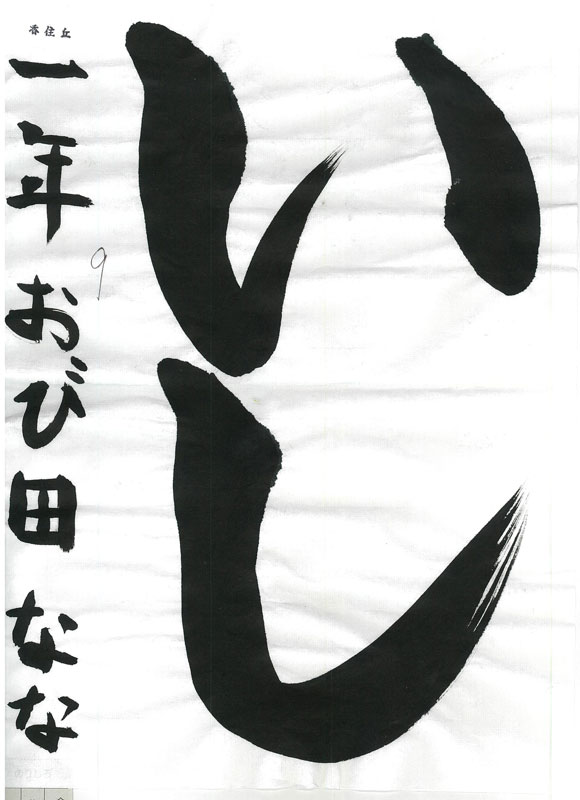 いし
香住丘
一年 おび田 なな
9